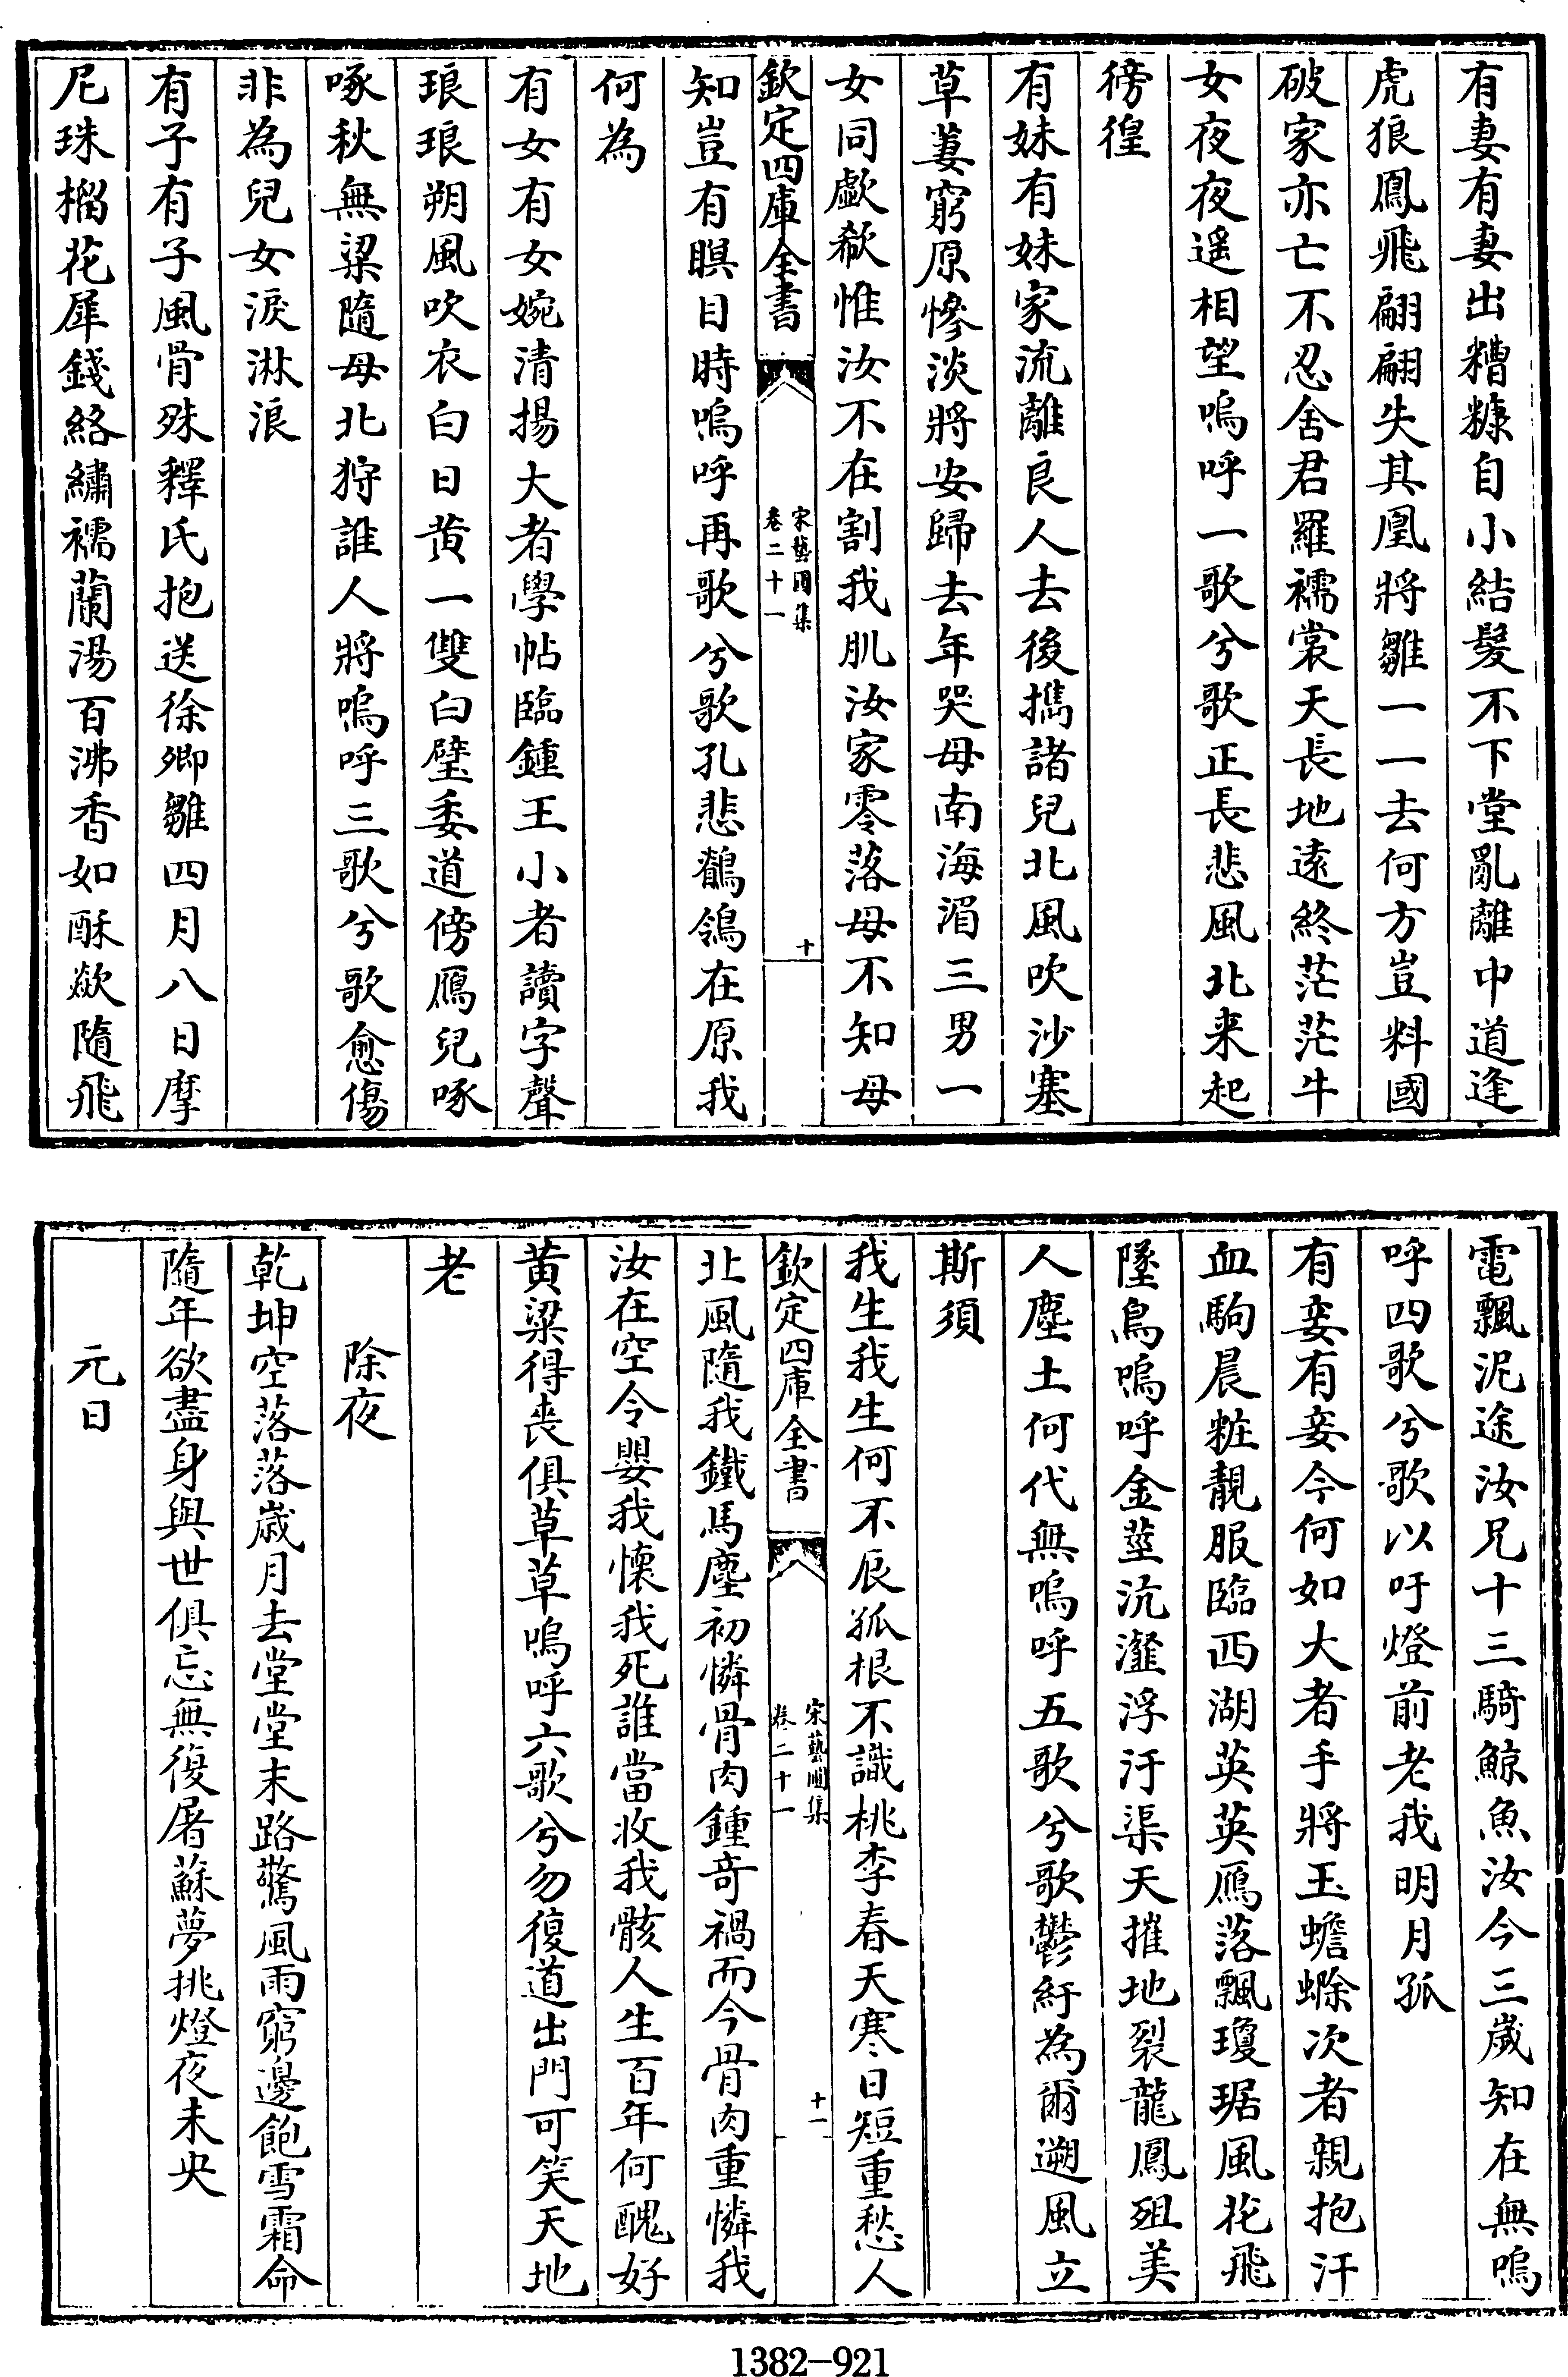 有妻有妻出糟糠自小結髮不下堂亂離中道逢
虎狼鳳飛翩翩失其凰將雛一一去何方豈料國
破家亦亡不忍舍君羅襦裳天長地遠終茫茫牛
女夜夜遥相望嗚呼一歌兮歌正長悲風北来起
徬徨
有妹有妹家流離良人去後携諸兒北風吹沙塞
草萋窮原慘淡將安歸去年哭母南海湄三男一
女同歔欷惟汝不在割我肌汝家零落母不知母
欽定四庫全書
宋藝圃集
卷二十一
十
知豈有瞑目時嗚呼再歌兮歌孔悲鶺鴒在原我
何為
有女有女婉清揚大者學帖臨鍾王小者讀字聲
琅琅朔風吹衣白日黄一雙白璧委道傍鴈兒啄
啄秋無粱隨母北狩誰人將嗚呼三歌兮歌愈傷
非為兒女淚淋浪
有子有子風骨殊釋氏抱送徐卿雛四月八日摩
尼珠榴花犀錢絡繡襦蘭湯百沸香如酥歘隨飛
電飄泥途汝兄十三騎鯨魚汝今三歲知在無嗚
呼四歌兮歌以吁燈前老我明月孤
有妾有妾今何如大者手將玉蟾蜍次者親抱汗
血駒晨粧靚服臨西湖英英鴈落飄瓊琚風花飛
墜鳥嗚呼金莖沆瀣浮汙渠天摧地裂龍鳳殂美
人塵土何代無嗚呼五歌兮歌鬱紆為爾遡風立
斯須
我生我生何不辰孤根不識桃李春天寒日短重愁人
欽定四庫全書
宋藝圃集
卷二十一
十一
北風隨我鐵馬塵初憐骨肉鍾奇禍而今骨肉重憐我
汝在空令嬰我懷我死誰當收我骸人生百年何醜好
黄粱得喪俱草草嗚呼六歌兮勿復道出門可笑天地
老
除夜
乾坤空落落歲月去堂堂末路驚風雨窮邊飽雪霜命
隨年欲盡身與世俱忘無復屠蘇夢挑燈夜未央
元日
1382-921